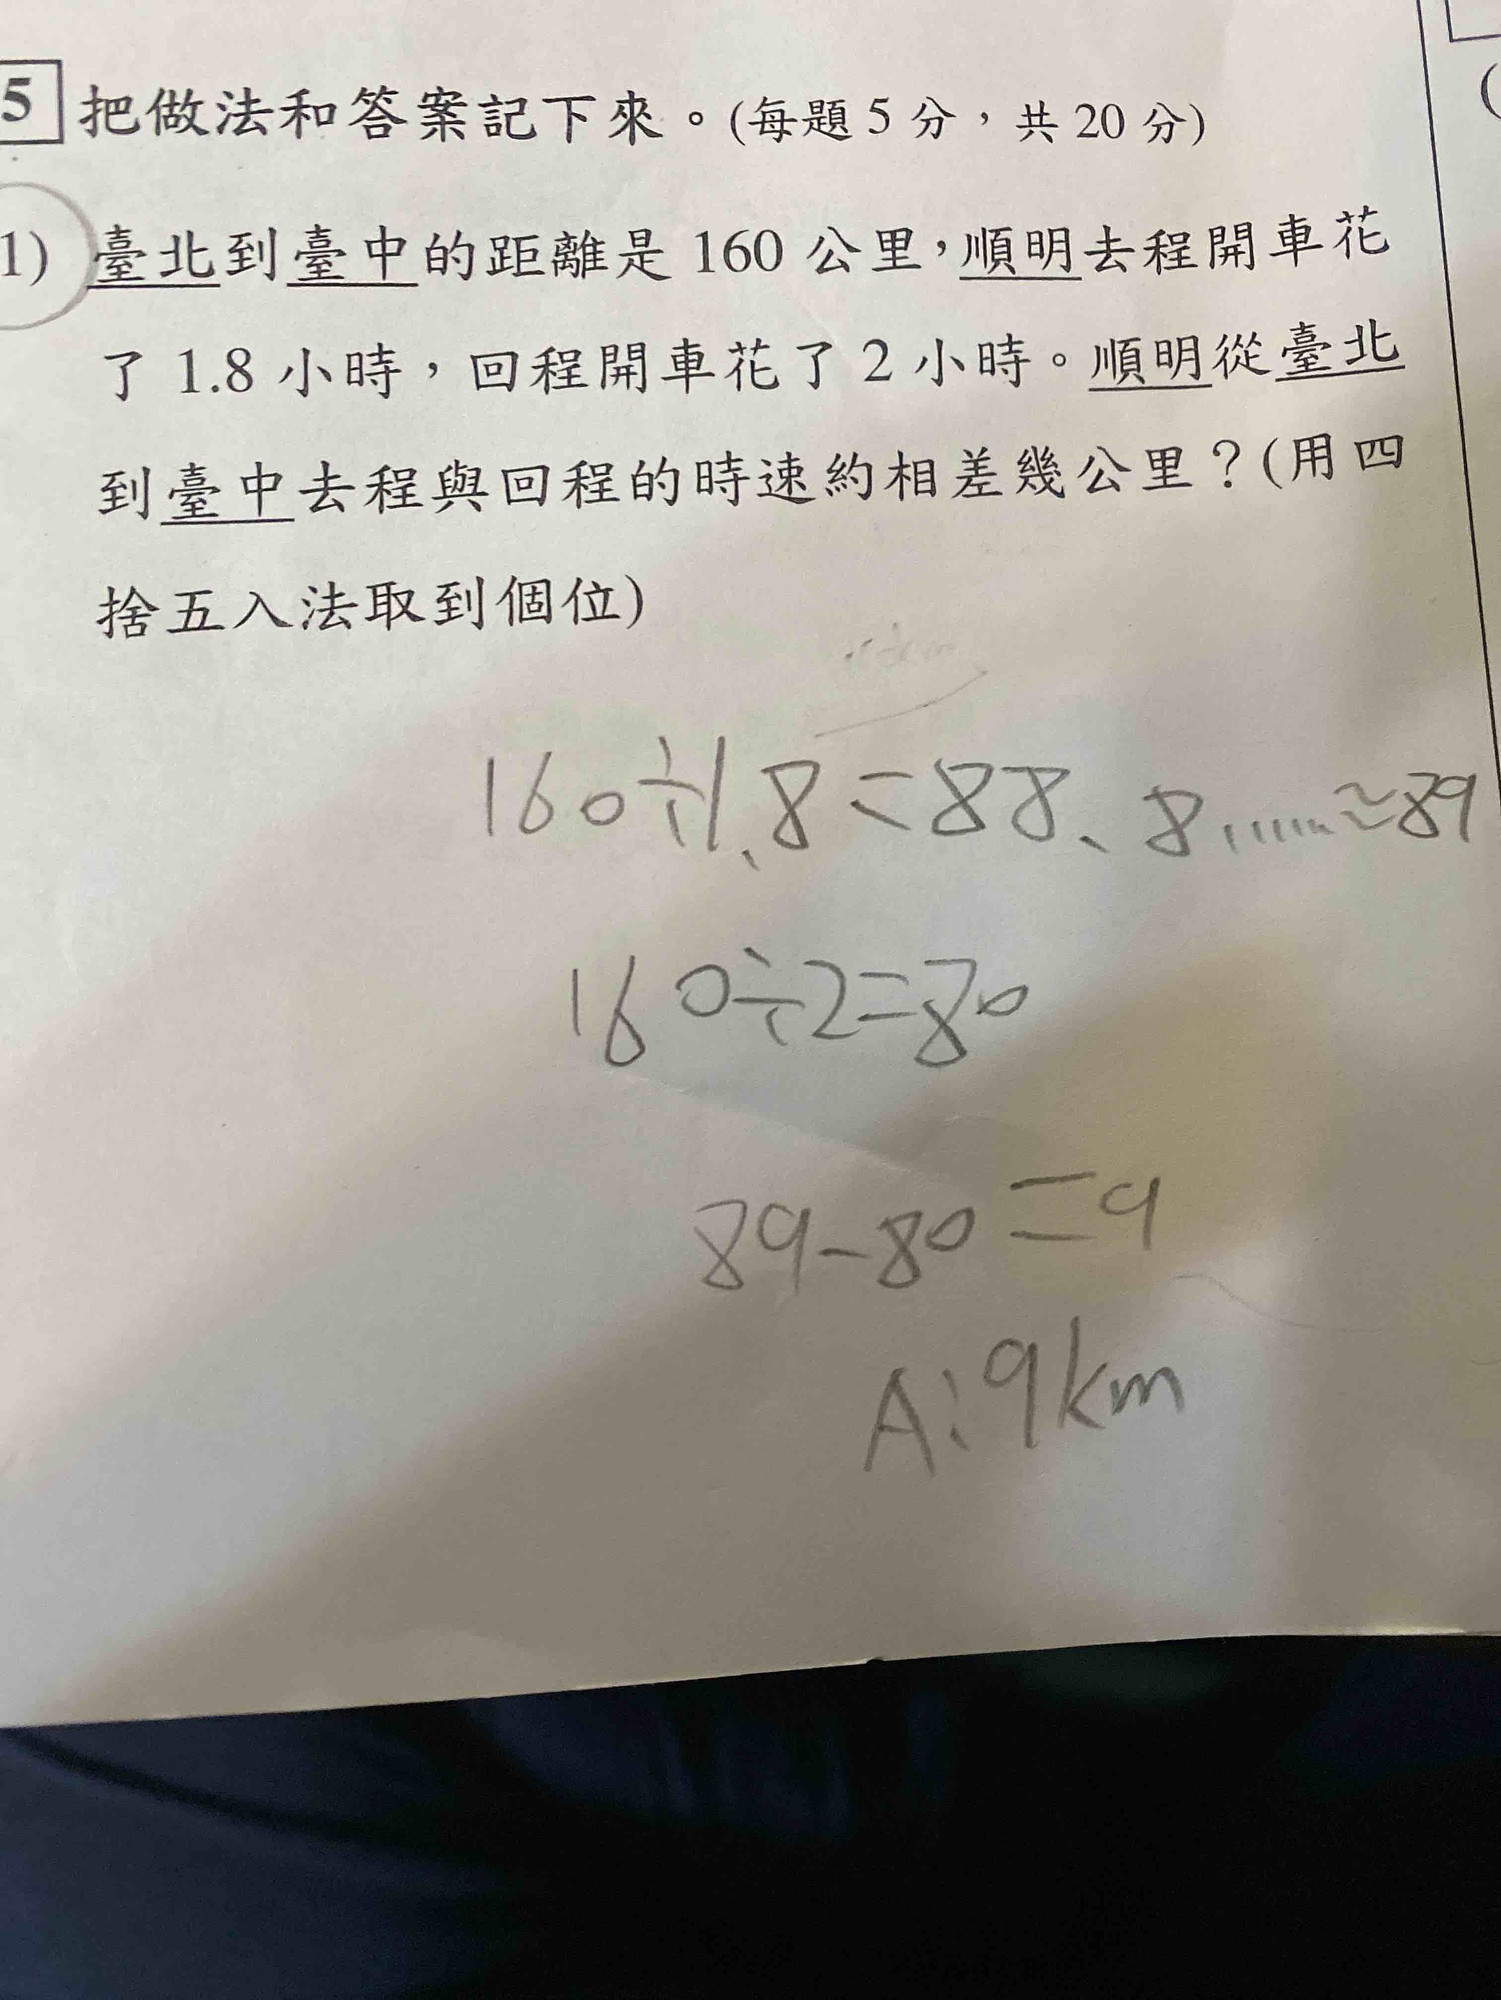 5 把做法和答案記下來。(每題5分，共20分)
1) 臺北到臺中的距離是160公里，順明去程開車花
了1.8小時，回程開車花了2小時。順明從臺北
到臺中去程與回程的時速約相差幾公里？(用四
捨五入法取到個位)
160÷1.8=88.8......≈89
160÷2=80
89-80=9
A:9km